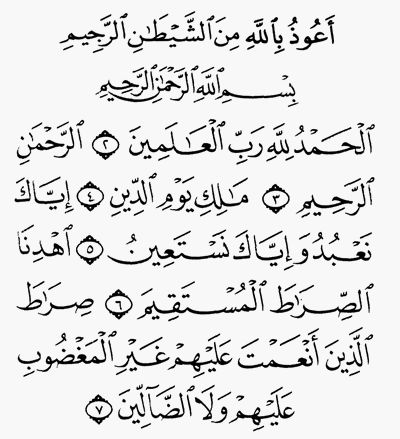 أَعُوذُ بِاللَّهِ مِنَ الشَّيْطَانِ الرَّجِيمِ
بِسْمِ اللَّهِ الرَّحْمَٰنِ الرَّحِيمِ
الْحَمْدُ لِلَّهِ رَبِّ الْعَالَمِينَ ٢ الرَّحْمَٰنِ
الرَّحِيمِ ٣ مَالِكِ يَوْمِ الدِّينِ ٤ إِيَّاكَ
نَعْبُدُ وَإِيَّاكَ نَسْتَعِينُ ٥ اهْدِنَا
الصِّرَاطَ الْمُسْتَقِيمَ ٦ صِرَاطَ
الَّذِينَ أَنْعَمْتَ عَلَيْهِمْ غَيْرِ الْمَغْضُوبِ
عَلَيْهِمْ وَلَا الضَّالِّينَ ٧